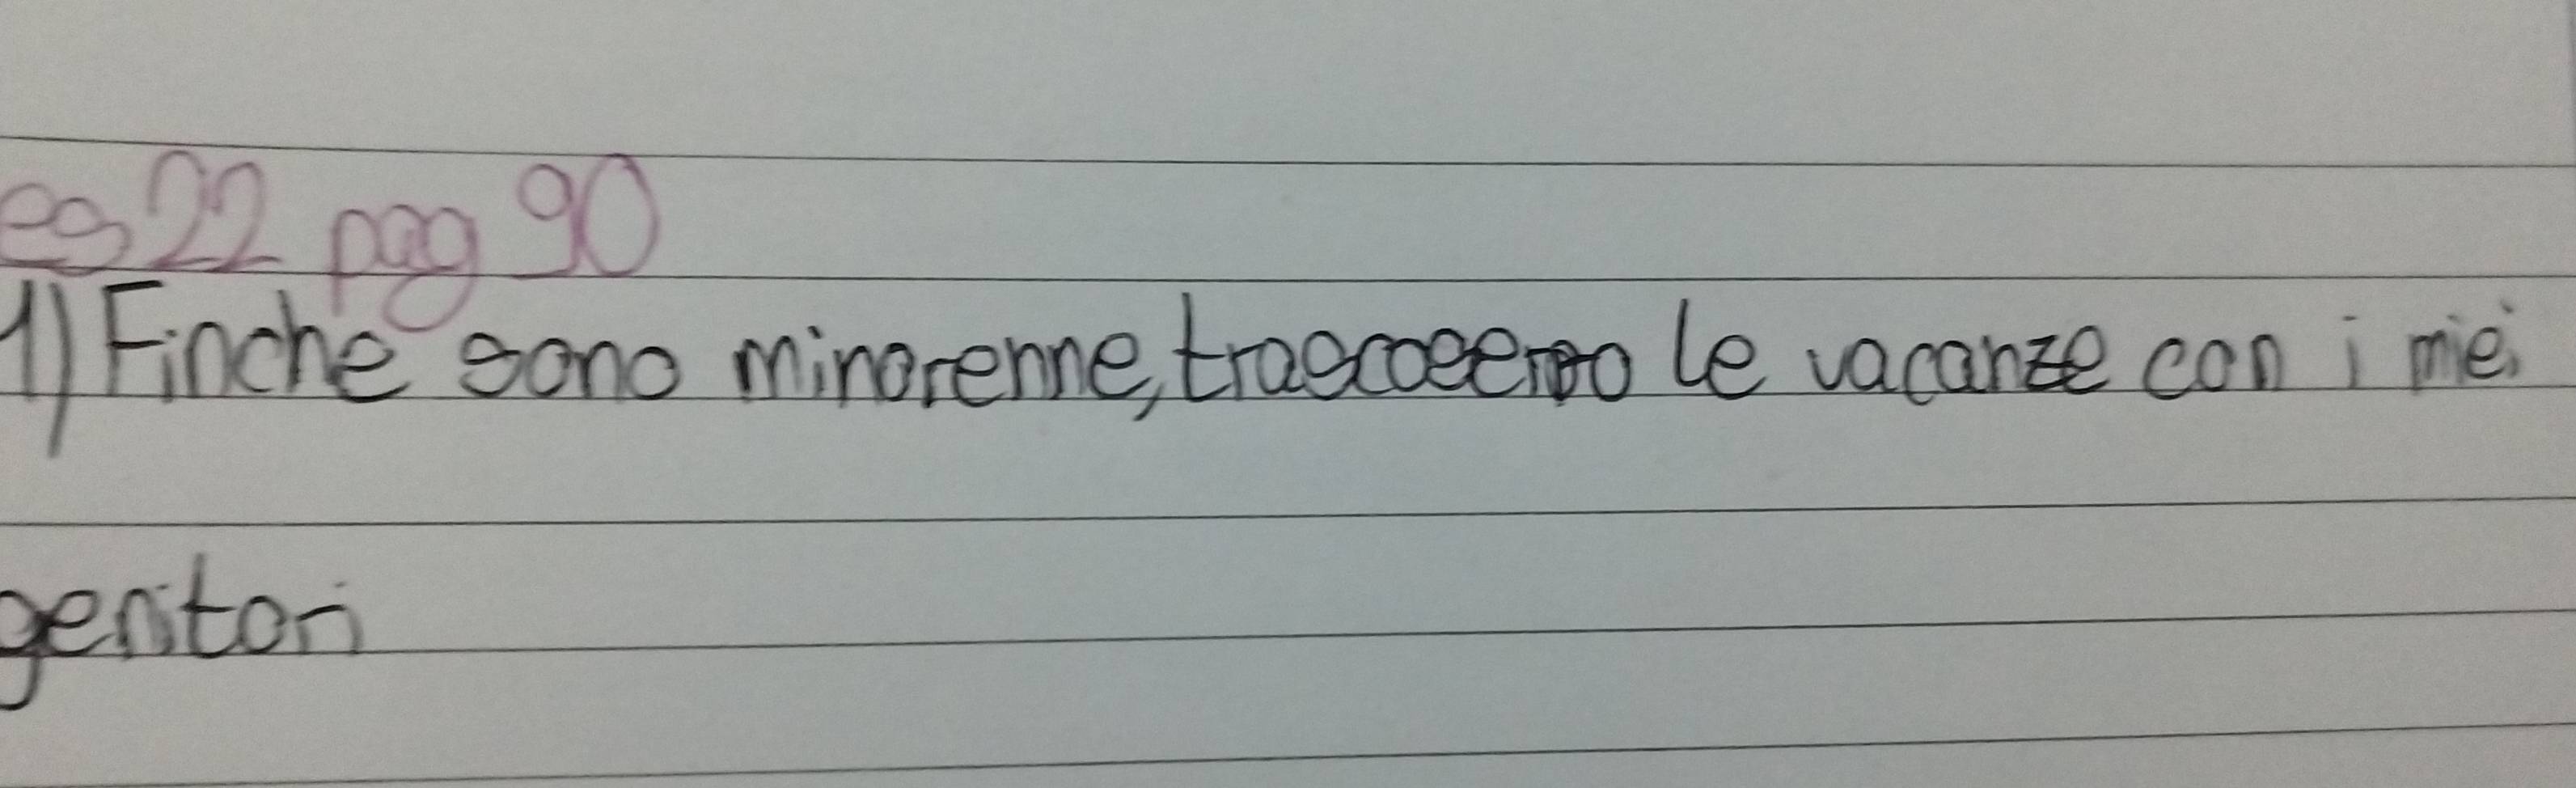 es 22 pag 90
1) Finche sono minorenne, le vacanze con i miei
genitori